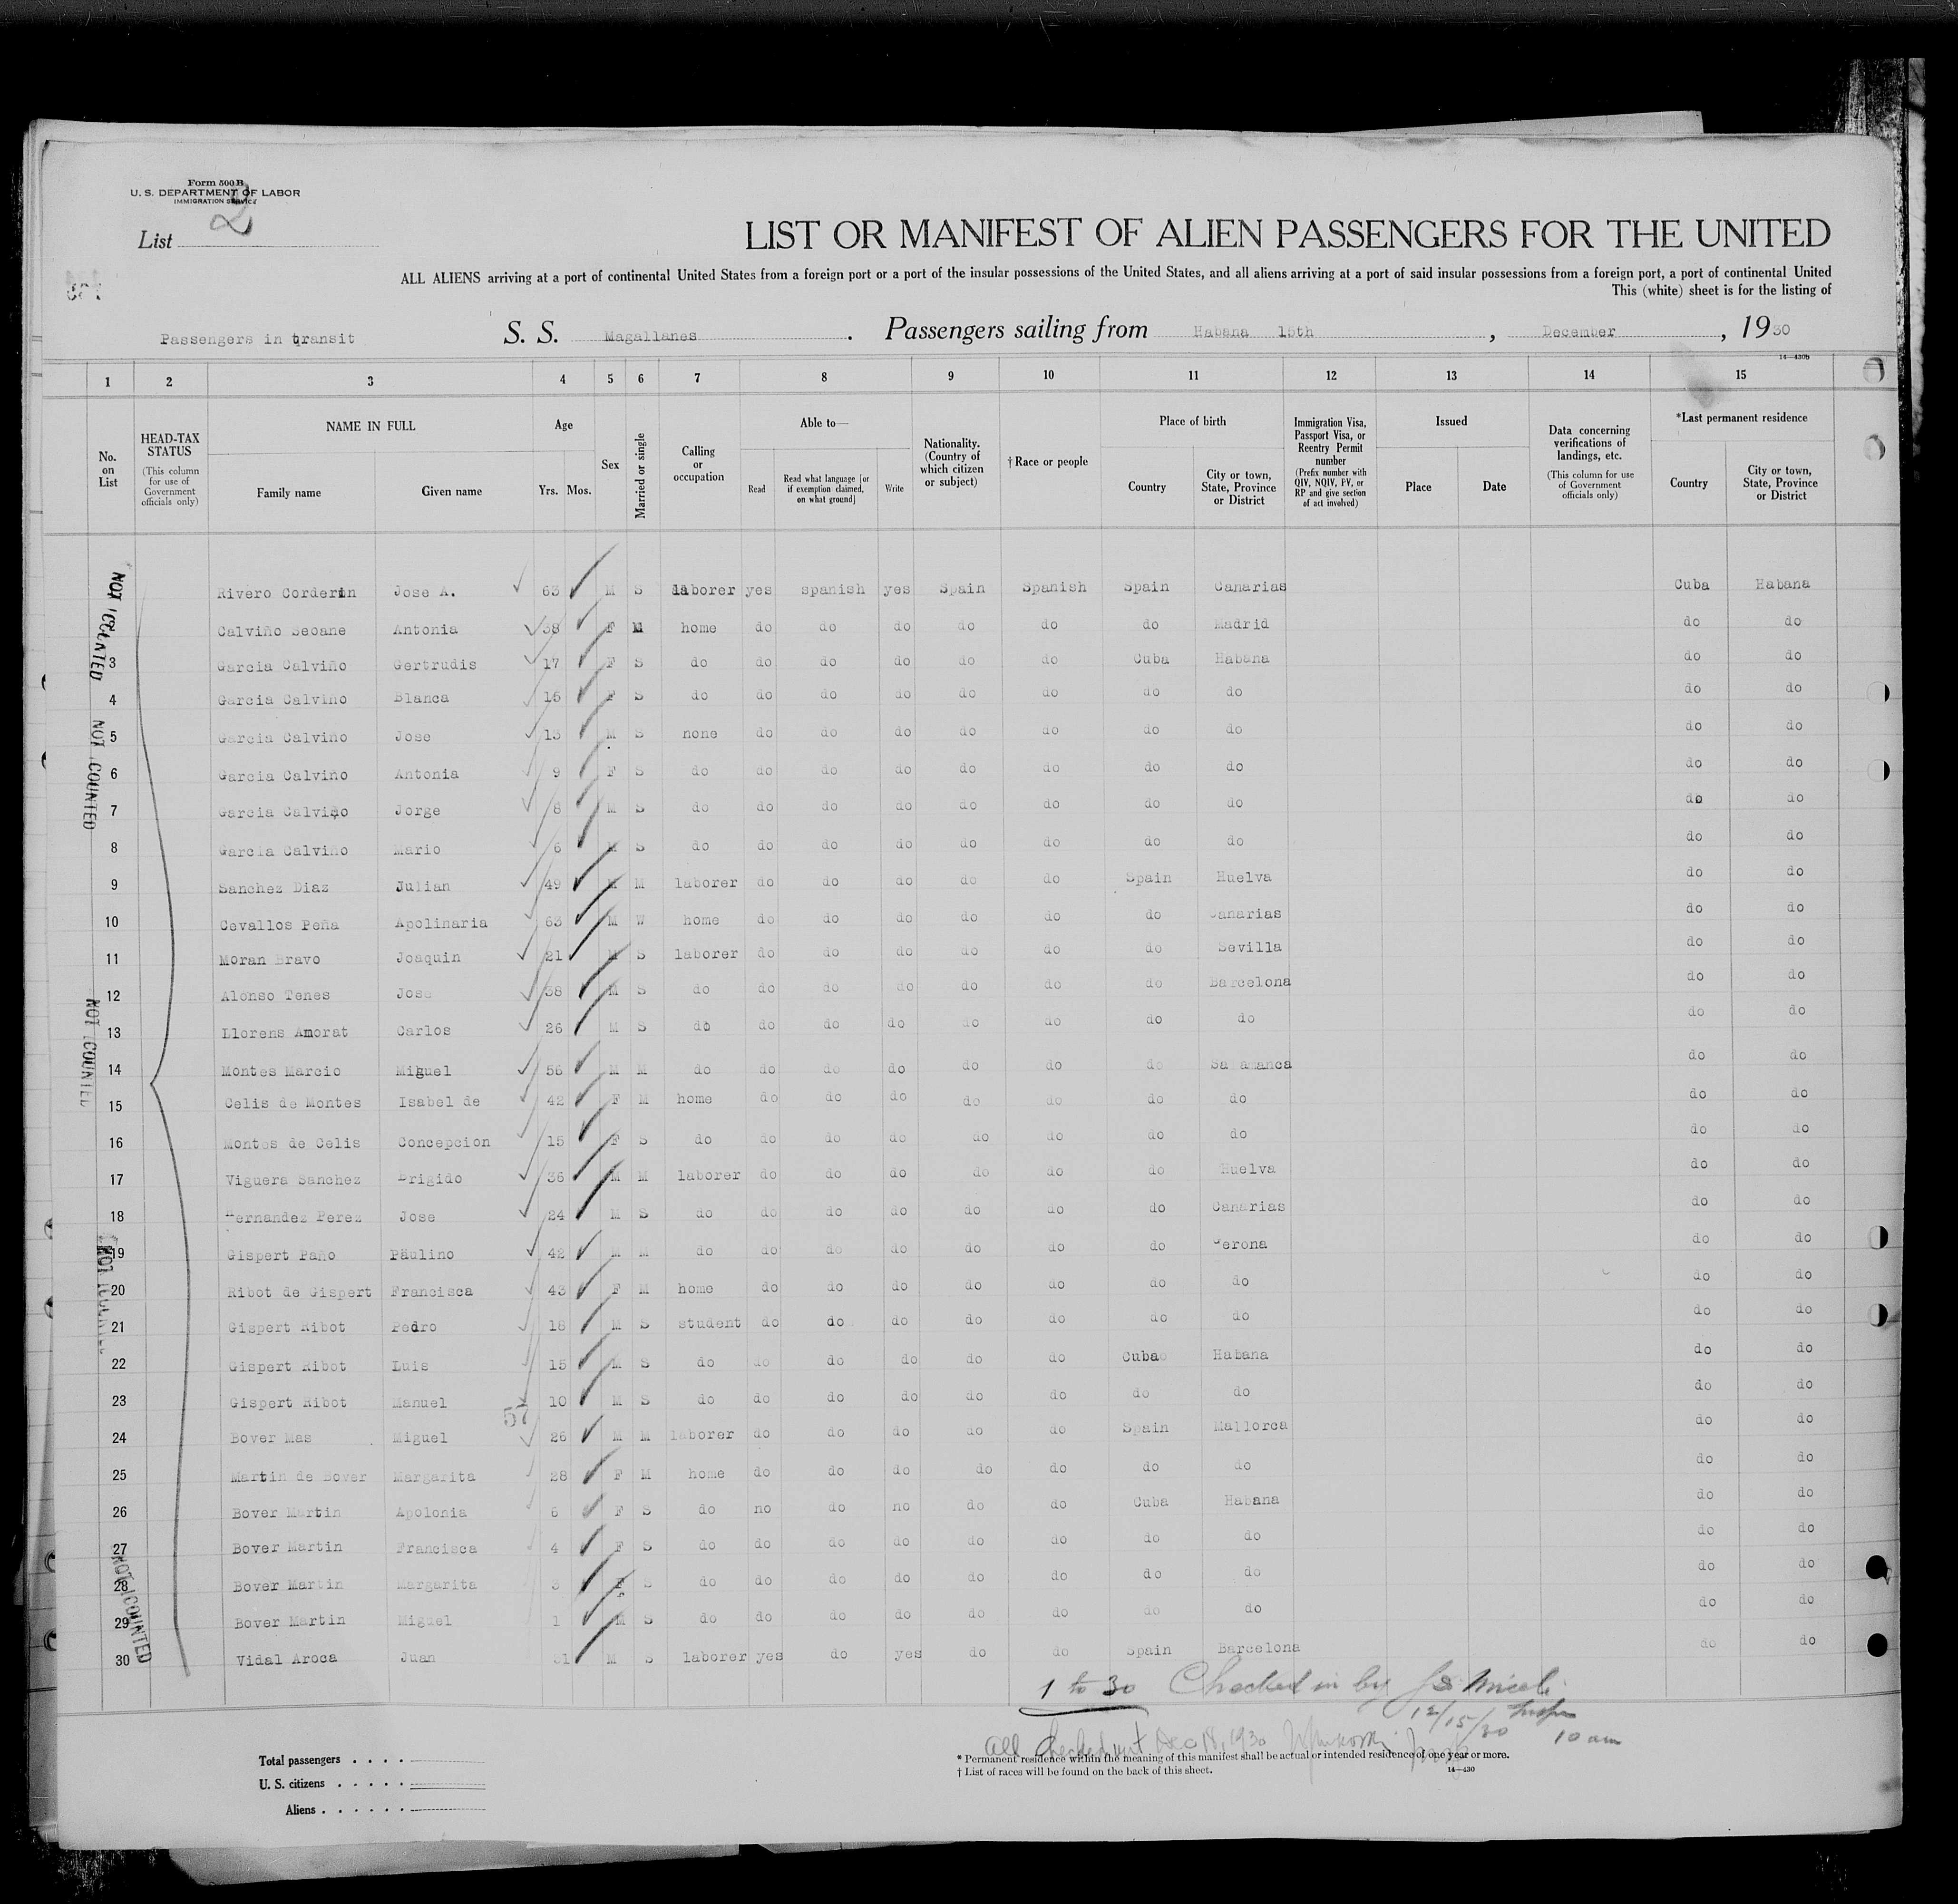 Form 500 B
U. S. DEPARTMENT OF LABOR
IMMIGRATION SERVICE
List 2
LIST OR MANIFEST OF ALIEN PASSENGERS FOR THE UNITED
ALL ALIENS arriving at a port of continental United States from a foreign port or a port of the insular possessions of the United States, and all aliens arriving at a port of said insular possessions from a foreign port, a port of continental United
This (white) sheet is for the listing of
Passengers in transit S. S. Magallanes. Passengers sailing from Habana 15th, December, 1930
14—430b
1 2 3 4 5 6 7 8 9 10 11 12 13 14 15
No. on List
HEAD-TAX STATUS (This column for use of Government officials only)
NAME IN FULL
Family name Given name
Age
Yrs. Mos.
Sex
Married or single
Calling or occupation
Able to—
Read
Read what language [or if exemption claimed, on what ground]
Write
Nationality. (Country of which citizen or subject)
† Race or people
Place of birth
Country
City or town, State, Province or District
Immigration Visa, Passport Visa, or Reentry Permit number (Prefix number with QIV, NQIV, PV, or RP and give section of act involved)
Issued
Place Date
Data concerning verifications of landings, etc. (This column for use of Government officials only)
*Last permanent residence
Country
City or town, State, Province or District
NOT COUNTED
NOT COUNTED
NOT COUNTED
NOT COUNTED
NOT COUNTED
Rivero Corderon Jose A. 63 M S laborer yes spanish yes Spain Spanish Spain Canarias Cuba Habana
Calviño Seoane Antonia 38 F M home do do do do do do Madrid do do
3 Garcia Calviño Gertrudis 17 F S do do do do do do Cuba Habana do do
4 Garcia Calvino Blanca 15 F S do do do do do do do do do do
5 Garcia Calvino Jose 13 M S none do do do do do do do do do
6 Garcia Calvino Antonia 9 F S do do do do do do do do do do
7 Garcia Calviño Jorge 8 M S do do do do do do do do do do
8 Garcia Calviño Mario 6 M S do do do do do do do do do do
9 Sanchez Diaz Julian 49 M M laborer do do do do do Spain Huelva do do
10 Cevallos Peña Apolinaria 63 M W home do do do do do do Canarias do do
11 Moran Bravo Joaquin 21 M S laborer do do do do do do Sevilla do do
12 Alonso Tenes Jose 38 M S do do do do do do do Barcelona do do
13 Llorens Amorat Carlos 26 M S do do do do do do do do do do
14 Montes Marcio Miguel 56 M M do do do do do do do Salamanca do do
15 Celis de Montes Isabel de 42 F M home do do do do do do do do do
16 Montes de Celis Concepcion 15 F S do do do do do do do do do do
17 Viguera Sanchez Brigido 36 M M laborer do do do do do do Huelva do do
18 Hernandez Perez Jose 24 M S do do do do do do do Canarias do do
19 Gispert Paño Paulino 42 M M do do do do do do do Gerona do do
20 Ribot de Gispert Francisca 43 F M home do do do do do do do do do
21 Gispert Ribot Pedro 18 M S student do do do do do do do do do
22 Gispert Ribot Luis 15 M S do do do do do do Cuba Habana do do
23 Gispert Ribot Manuel 10 M S do do do do do do do do do do
57
24 Bover Mas Miguel 26 M M laborer do do do do do Spain Mallorca do do
25 Martin de Bover Margarita 28 F M home do do do do do do do do do
26 Bover Martin Apolonia 6 F S do no do no do do Cuba Habana do do
27 Bover Martin Francisca 4 F S do do do do do do do do do do
28 Bover Martin Margarita 3 F S do do do do do do do do do do
29 Bover Martin Miguel 1 M S do do do do do do do do do do
30 Vidal Aroca Juan 31 M S laborer yes do yes do do Spain Barcelona do do
1 to 30 Checked in by
12/15/30 10 am
All checked out Dec 18, 1930
Total passengers
U. S. citizens
Aliens
* Permanent residence within the meaning of this manifest shall be actual or intended residence of one year or more.
† List of races will be found on the back of this sheet.
14—430